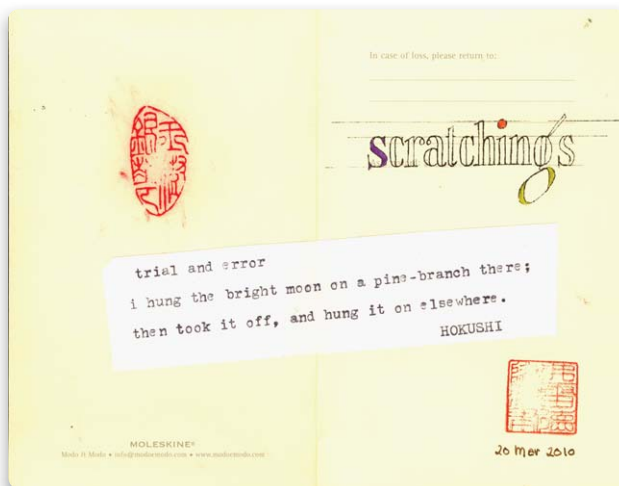 In case of loss, please return to:
scratchings
trial and error
i hung the bright moon on a pine-branch there;
then took it off, and hung it on elsewhere.
HOKUSHI
MOLESKINE®
Modo & Modo • info@modoemodo.com • www.modoemodo.com
20 Mar 2010